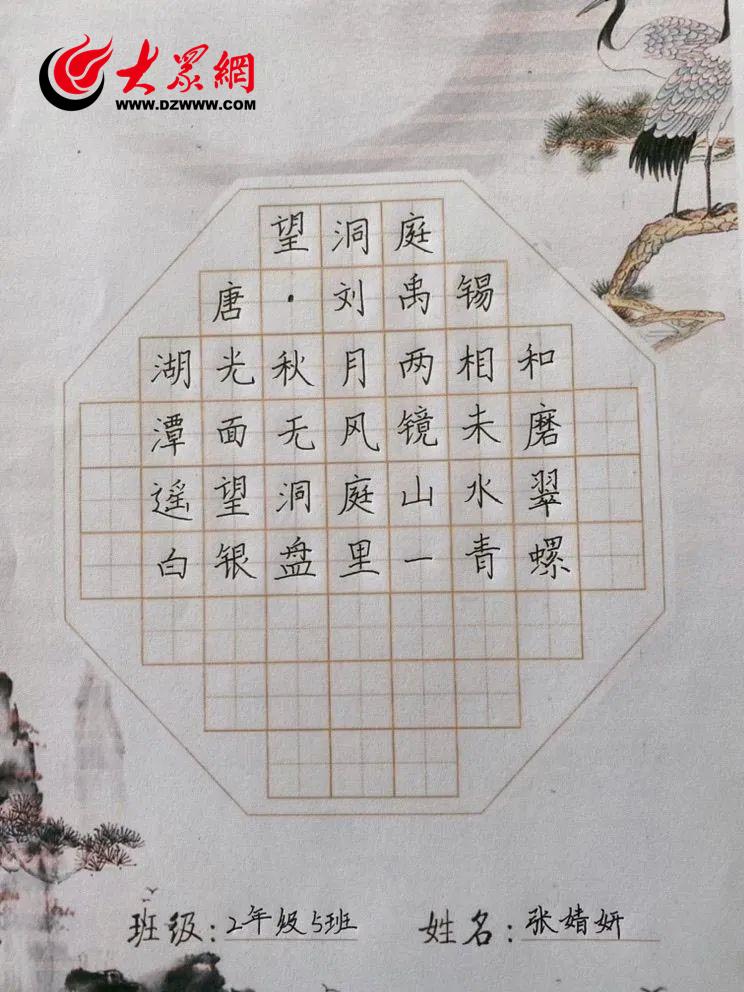 大眾網
WWW.DZWWW.COM
望洞庭
唐·刘禹锡
湖光秋月两相和
潭面无风镜未磨
遥望洞庭山水翠
白银盘里一青螺
班级:2年级5班 姓名:张婧妍